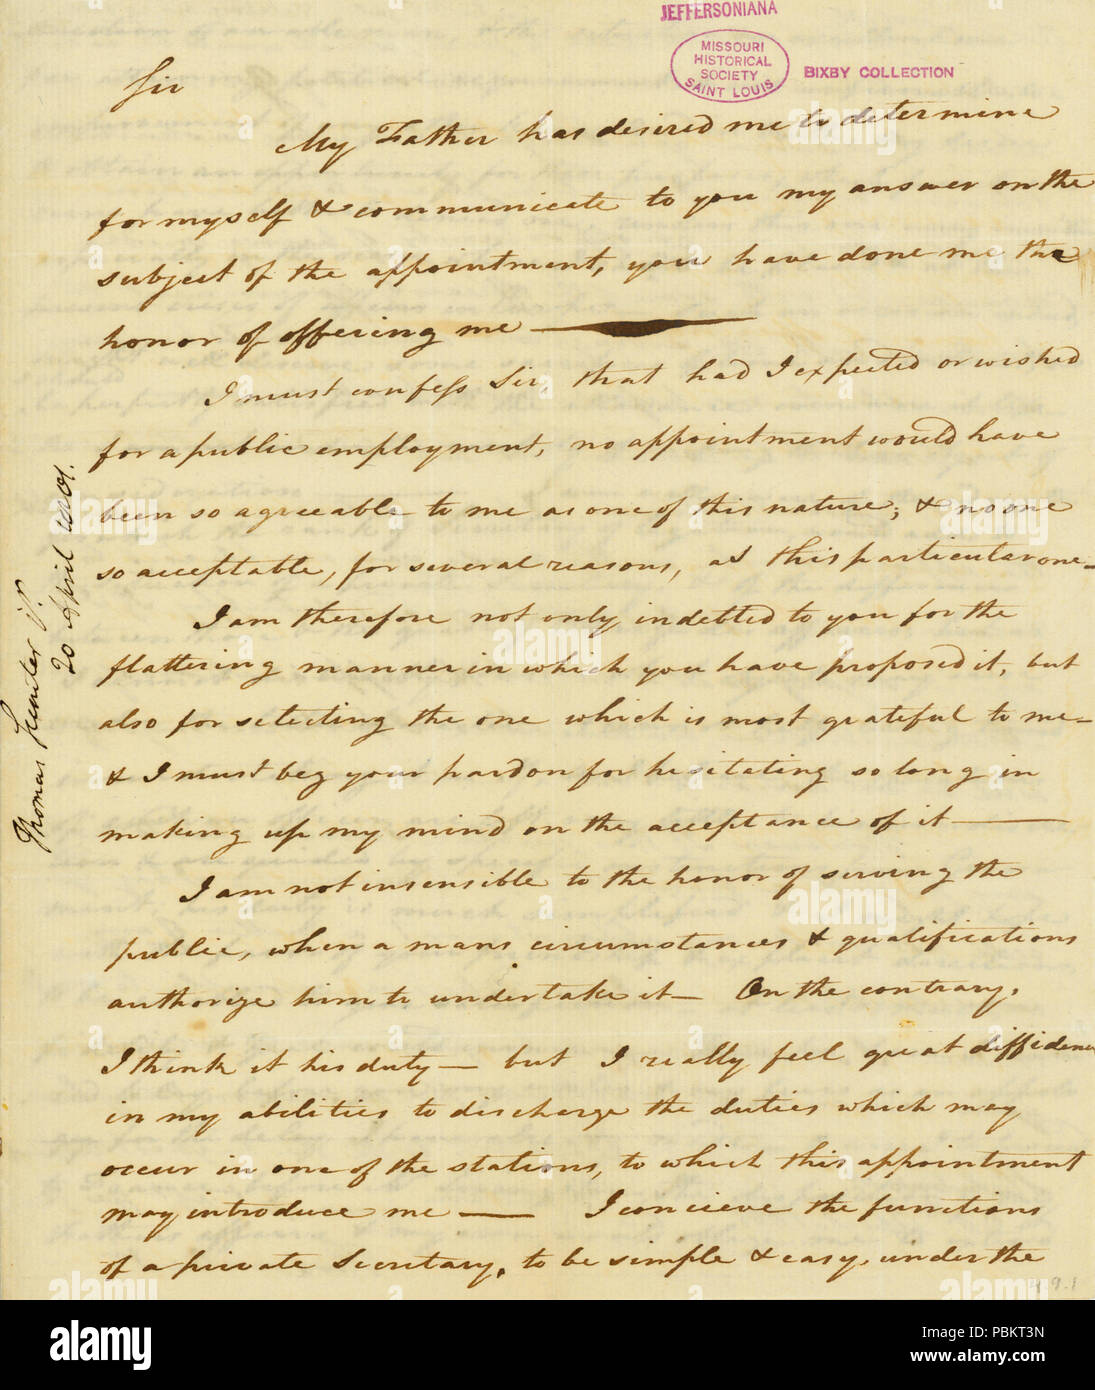 JEFFERSONIANA
MISSOURI
HISTORICAL
SOCIETY
SAINT LOUIS
BIXBY COLLECTION
Sir
My Father has desired me to determine
for myself & communicate to you my answer on the
subject of the appointment, you have done me the
honor of offering me —
I must confess Sir, that had I expected or wished
for a public employment, no appointment would have
been so agreeable to me as one of this nature; & no one
so acceptable, for several reasons, as this particular one—
I am therefore not only indebted to you for the
flattering manner in which you have proposed it, but
also for selecting the one which is most grateful to me—
& I must beg your pardon for hesitating so long in
making up my mind on the acceptance of it —
I am not insensible to the honor of serving the
public, when a mans circumstances & qualifications
authorize him to undertake it— On the contrary,
I think it his duty — but I really feel great diffidence
in my abilities to discharge the duties which may
occur in one of the stations, to which this appointment
may introduce me — I concieve the functions
of a private Secretary, to be simple & easy, under the
Thomas Sumter Jr.
20 April 1801.
4.9.1
alamy
Image ID: PBKT3N
www.alamy.com